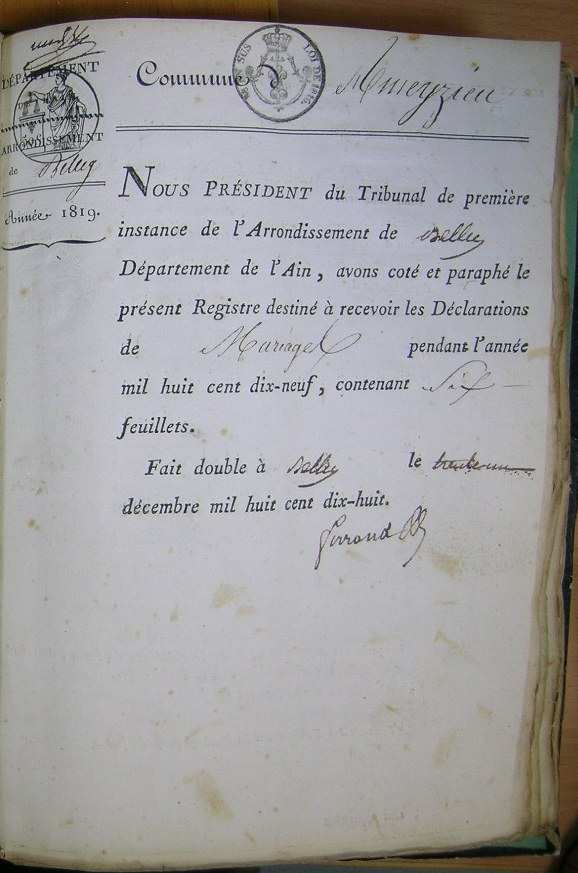 DÉPARTEMENT
ARRONDISSEMENT
de Belley
Année 1819.
Commune d' Ameyzieu
SUS LOI DE 1816
NOUS PRÉSIDENT du Tribunal de première
instance de l'Arrondissement de Belley
Département de l'Ain, avons coté et paraphé le
présent Registre destiné à recevoir les Déclarations
de Mariages pendant l'année
mil huit cent dix-neuf, contenant Six
feuillets.
Fait double à Belley le trente un
décembre mil huit cent dix-huit.